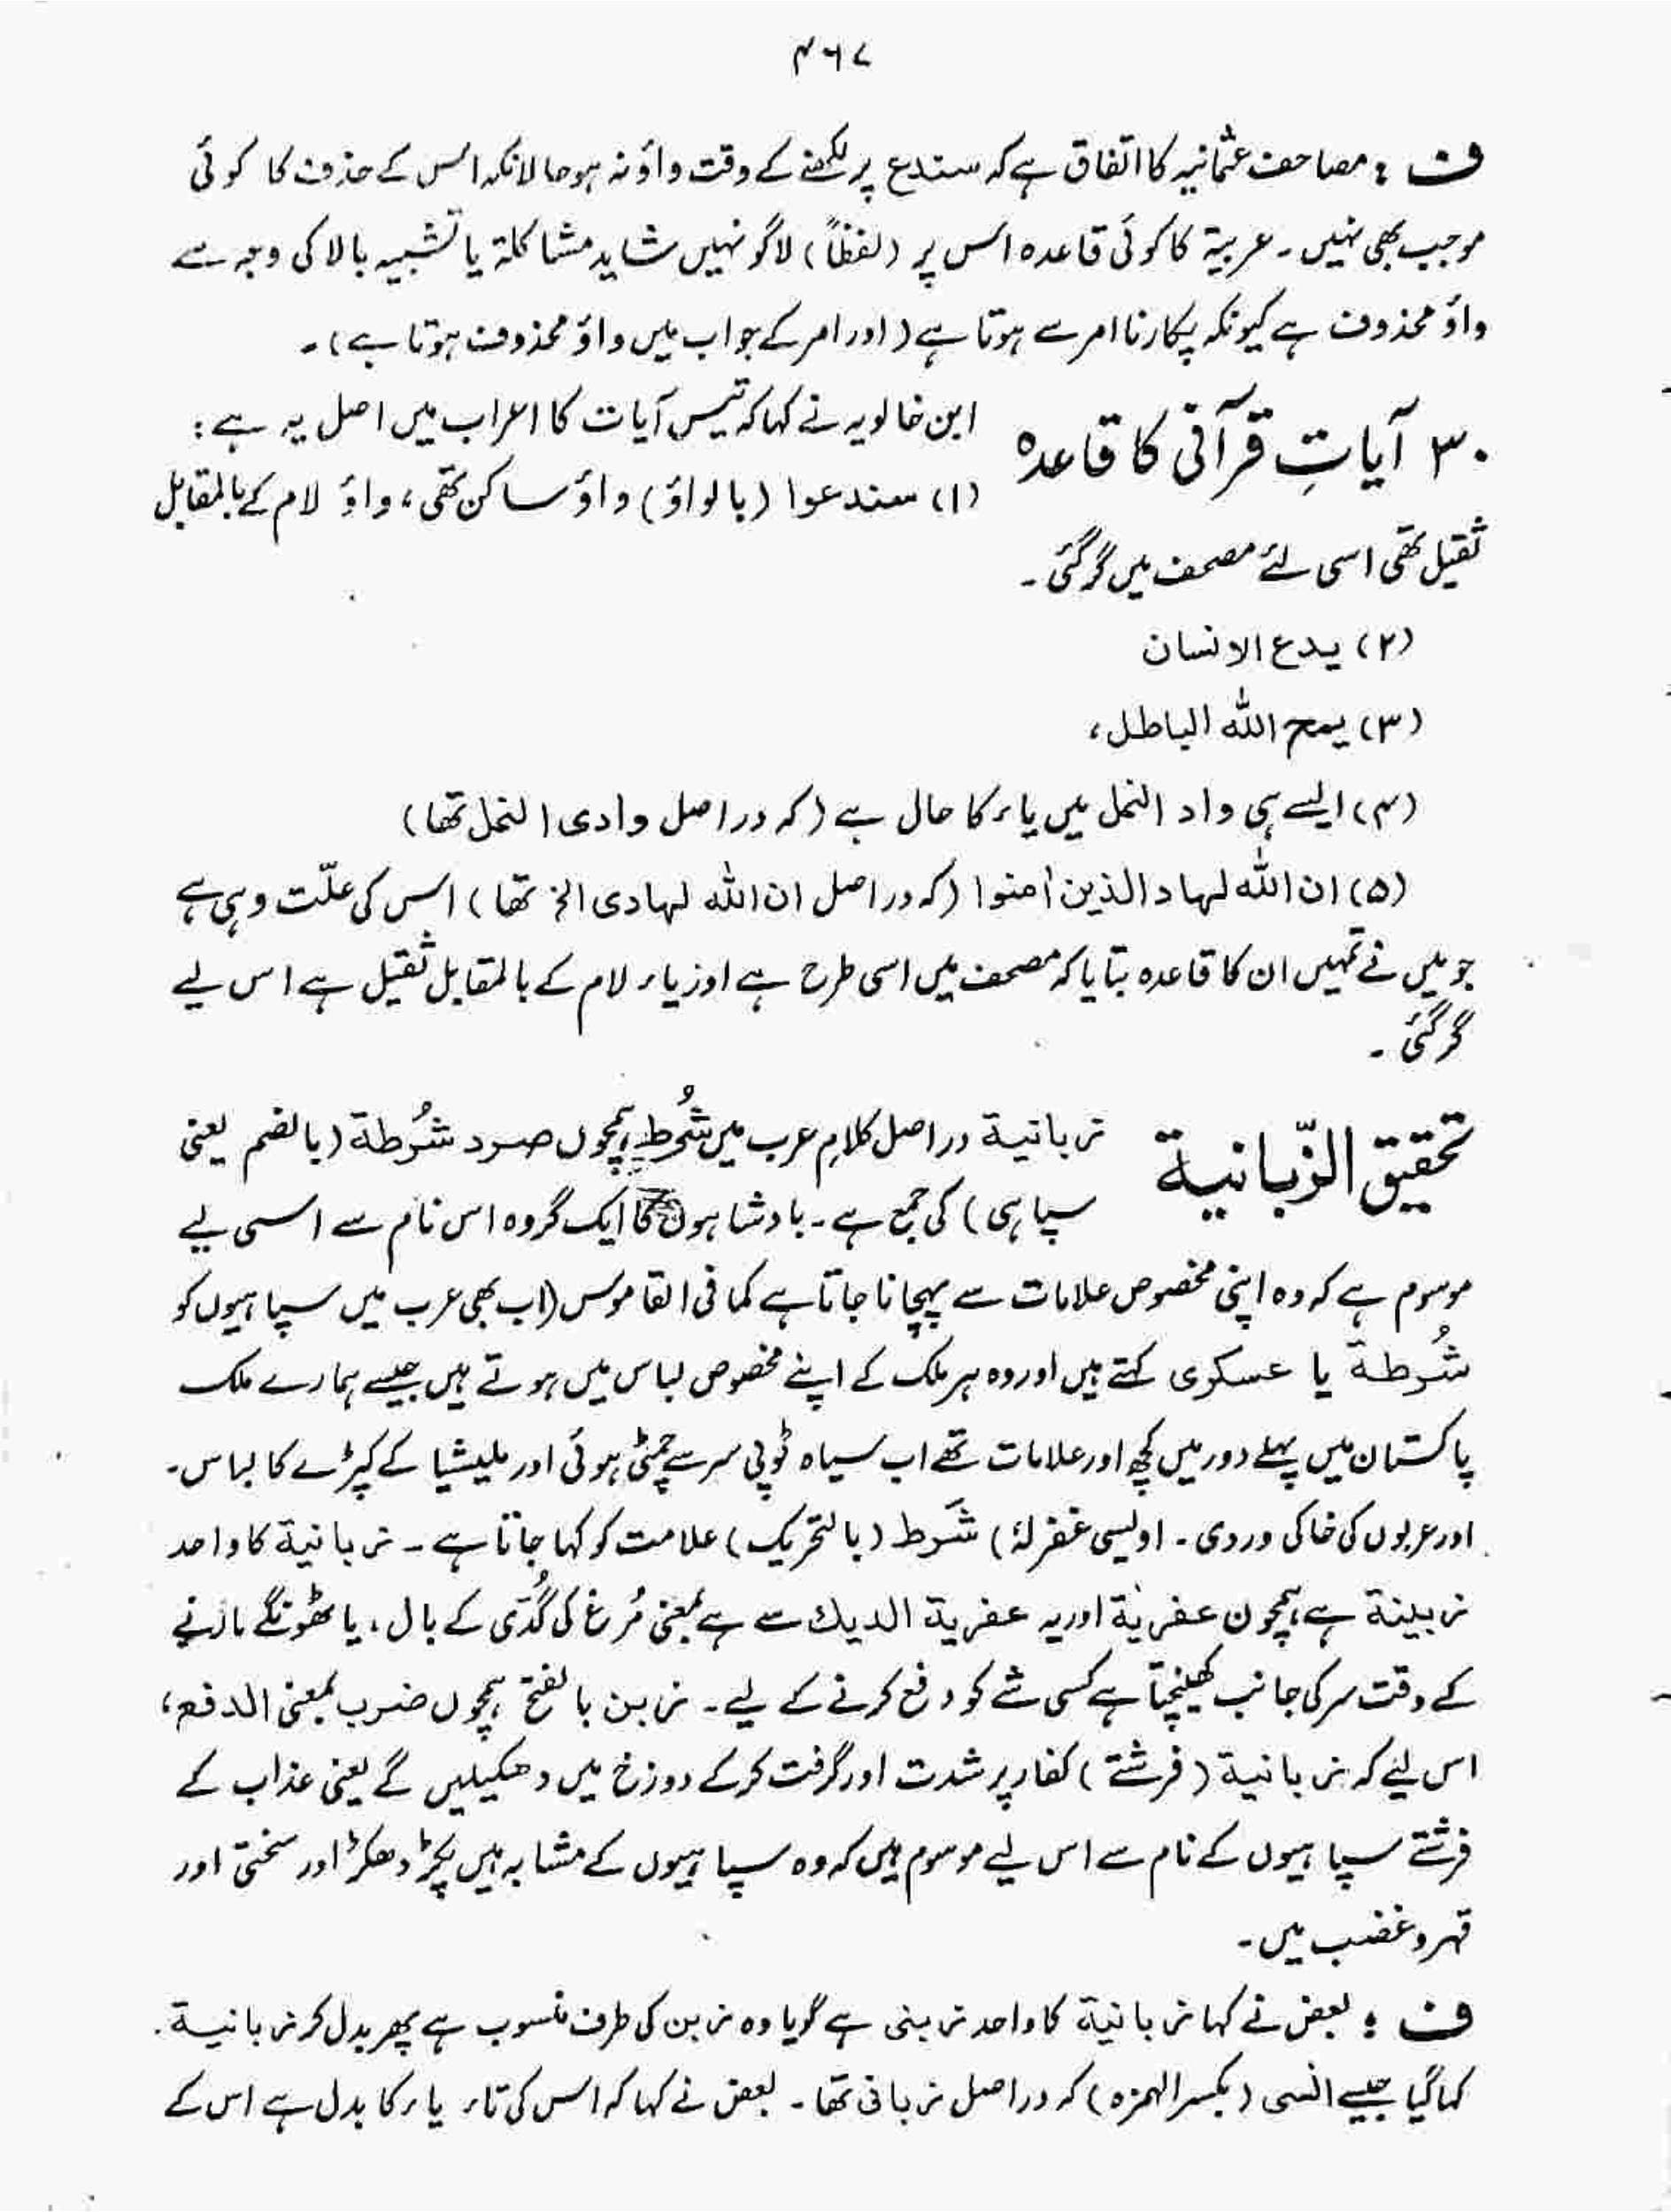 ۴۶۷
ف : مصاحف عثمانیہ کا اتفاق ہے کہ سندع پر لکھنے کے وقت واؤ نہ ہو حالانکہ اس کے حذف کا کوئی
موجب بھی نہیں ۔ عربیۃ کا کوئی قاعدہ اس پر (لفظاً) لاگو نہیں شاید مشاکلۃ یا تشبیہ بالا کی وجہ سے
واؤ محذوف ہے کیونکہ پکارنا امر سے ہوتا ہے (اور امر کے جواب میں واؤ محذوف ہوتا ہے)۔
۳۰ آیاتِ قرآنی کا قاعدہ
ابن خالویہ نے کہا کہ تیس آیات کا اعراب میں اصل یہ ہے :
(۱) سندعوا (بالواؤ) واؤ ساکن تھی، واؤ لام کے بالمقابل
ثقیل تھی اسی لئے مصحف میں گر گئی ۔
(۲) یدع الانسان
(۳) یمح اللہ الباطل،
(۴) ایسے ہی واد النمل میں یاء کا حال ہے (کہ دراصل وادی النمل تھا)
(۵) ان اللہ لہاد الذین اٰمنوا (کہ دراصل ان اللہ لہادی الخ تھا) اس کی علّت وہی ہے
جو میں نے تمہیں ان کا قاعدہ بتایا کہ مصحف میں اسی طرح ہے اور یاء لام کے بالمقابل ثقیل ہے اس لیے
گر گئی ۔
تحقیق الزّبانیۃ
زبانیۃ دراصل کلامِ عرب میں شُرُط ہمچوں صرد شُرُطۃ (بالضم یعنی
سپاہی) کی جمع ہے ۔ بادشاہوں کا ایک گروہ اس نام سے اسی لیے
موسوم ہے کہ وہ اپنی مخصوص علامات سے پہچانا جاتا ہے کما فی القاموس (اب بھی عرب میں سپاہیوں کو
شُرُطۃ یا عسکری کہتے ہیں اور وہ ہر ملک کے اپنے مخصوص لباس میں ہوتے ہیں جیسے ہمارے ملک
پاکستان میں پہلے دور میں کچھ اور علامات تھے اب سیاہ ٹوپی سر سے چمٹی ہوئی اور ملیشیا کے کپڑے کا لباس ۔
اور عربوں کی خاکی وردی ۔ اویسی غفرلہٗ) شَرَط (بالتحریک) علامت کو کہا جاتا ہے ۔ زبانیۃ کا واحد
زبینۃ ہے ہمچون عفریۃ اور یہ عفریۃ الدیك سے ہے بمعنی مُرغ کی گُدّی کے بال، یا ٹھونگے مارنے
کے وقت سر کی جانب کھینچتا ہے کسی شے کو دفع کرنے کے لیے ۔ زبن بالفتح ہمچوں ضرب بمعنی الدفع،
اس لیئے کہ زبانیۃ (فرشتے) کفار پر شدت اور گرفت کرکے دوزخ میں دھکیلیں گے یعنی عذاب کے
فرشتے سپاہیوں کے نام سے اس لیے موسوم ہیں کہ وہ سپاہیوں کے مشابہ ہیں پکڑ دھکڑ اور سختی اور
قہر و غضب میں ۔
ف : بعض نے کہا زبانیۃ کا واحد زبنی ہے گویا وہ زبن کی طرف منسوب ہے پھر بدل کر زبانیۃ
کہا گیا جیسے انسی (بکسر الہمزہ) کہ دراصل زبانی تھا ۔ بعض نے کہا کہ اس کی تاء یاء کا بدل ہے اس کے